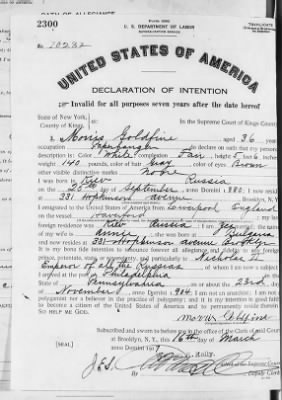 OATH OF ALLEGIANCE
2300
U. S. DEPARTMENT OF LABOR
NATURALIZATION SERVICE
TRIPLICATE
No. 10282
UNITED STATES OF AMERICA
DECLARATION OF INTENTION
Invalid for all purposes seven years after the date hereof
State of New York,
County of Kings,
In the Supreme Court of Kings County
I, Morris Goldfine aged 36 years,
occupation Paperhanger, do declare on oath that my personal
description is: Color White, complexion Fair, height 5 feet 6 inches,
weight 140 pounds, color of hair Gray, color of eyes Brown
other visible distinctive marks None
I was born in Kiew Russia
on the 25th day of September, anno Domini 1880; I now reside
at 331 Hopkinson avenue Brooklyn, N.Y.
I emigrated to the United States of America from Liverpool England
on the vessel Haverford; my last
foreign residence was Kiew Russia; I am
wife is Annie; she was born at
and now resides at 331 Hopkinson avenue Brooklyn
It is my bona fide intention to renounce forever all allegiance and fidelity to any foreign
prince, potentate, state, or sovereignty, and particularly to Nicholas II
Emperor of all the Russias, of whom I am now a subject;
I arrived at the port of Philadelphia, in the
State of Pennsylvania, on or about the 23rd day
of November, anno Domini 1904; I am not an anarchist; I am not a
polygamist nor a believer in the practice of polygamy; and it is my intention in good faith
to become a citizen of the United States of America and to permanently reside therein:
SO HELP ME GOD.
Morris Goldfine
Subscribed and sworn to before me in the office of the Clerk of said Court
at Brooklyn, N. Y., this 16th day of March
[SEAL] anno Domini 1917
Kelly
By